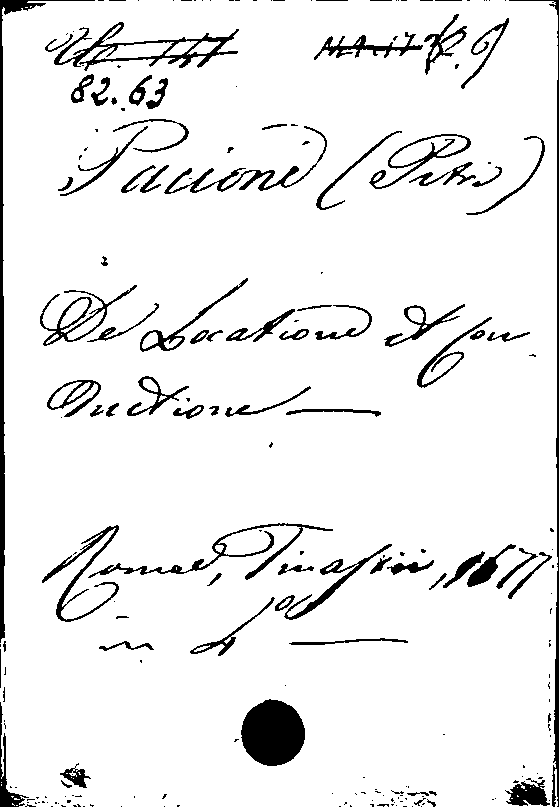 82.63
Pacione (Petri)
De Locatione et Con
ductione —
Romae, Tinassii, 1677
in 4º —